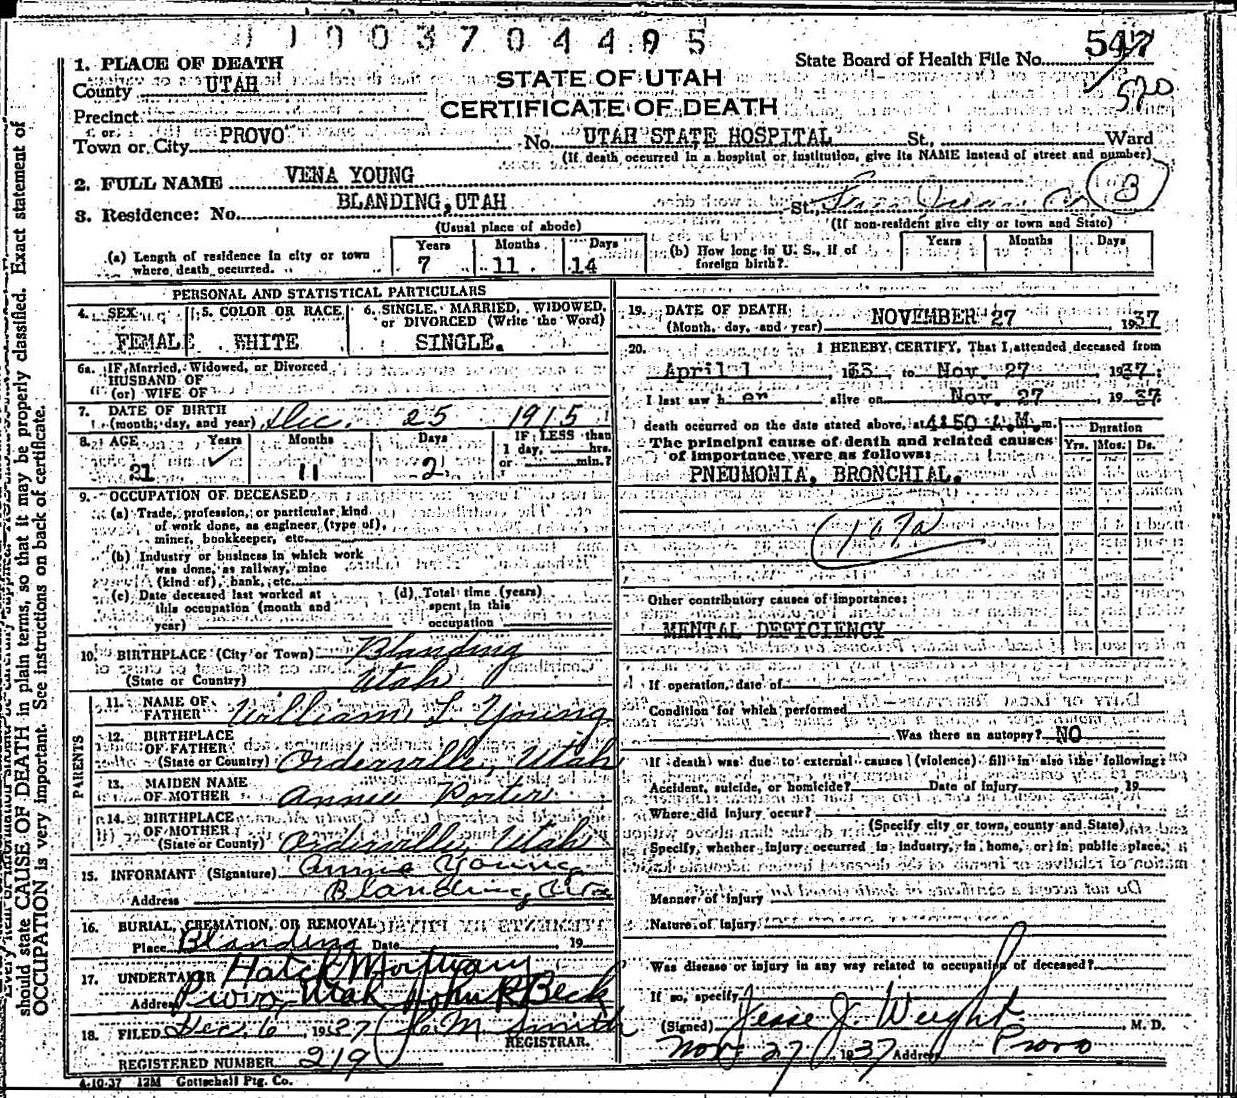 003704495
State Board of Health File No. 547
570
STATE OF UTAH
CERTIFICATE OF DEATH
1. PLACE OF DEATH
County UTAH
Precinct
Town or City PROVO No. UTAH STATE HOSPITAL St., Ward
(If death occurred in a hospital or institution, give its NAME instead of street and number)
2. FULL NAME VENA YOUNG
3
3. Residence: No. BLANDING, UTAH St., San Juan Co
(Usual place of abode) (If non-resident give city or town and State)
(a) Length of residence in city or town where death occurred. Years 7 Months 11 Days 14
(b) How long in U. S., if of foreign birth? Years Months Days
PERSONAL AND STATISTICAL PARTICULARS
4. SEX FEMALE
5. COLOR OR RACE WHITE
6. SINGLE, MARRIED, WIDOWED, or DIVORCED (Write the Word) SINGLE.
6a. IF Married, Widowed, or Divorced
HUSBAND OF
(or) WIFE OF
7. DATE OF BIRTH
(month, day, and year) Dec. 25 1915
8. AGE Years 21 Months 11 Days 2 IF LESS than 1 day, hrs. or min.?
9. OCCUPATION OF DECEASED
(a) Trade, profession, or particular kind
of work done, as engineer (type of),
miner, bookkeeper, etc.
(b) Industry or business in which work
was done, as railway, mine
(kind of), bank, etc.
(c) Date deceased last worked at
this occupation (month and
year)
(d) Total time (years)
spent in this
occupation
10. BIRTHPLACE (City or Town) Blanding
(State or Country) Utah
PARENTS
11. NAME OF
FATHER William L Young
12. BIRTHPLACE
OF FATHER
(State or Country) Orderville, Utah
13. MAIDEN NAME
OF MOTHER Annie Porter
14. BIRTHPLACE
OF MOTHER
(State or Country) Orderville, Utah
15. INFORMANT (Signature) Annie Young
Address Blanding, Uta
16. BURIAL, CREMATION, OR REMOVAL
Place Blanding Date 19
17. UNDERTAKER Hatch Mortuary
Address Provo, Utah John R Beck
18. FILED Dec. 6 1937 C M Smith
REGISTRAR.
REGISTERED NUMBER 219
4-10-37 12M Gottschall Ptg. Co.
19. DATE OF DEATH
(Month, day, and year) NOVEMBER 27 1937
20. I HEREBY CERTIFY, That I attended deceased from
April 1 193 to Nov. 27 1937;
I last saw her alive on Nov. 27 1937
death occurred on the date stated above, at 4:50 A.M. m.
The principal cause of death and related causes
of importance were as follows:
Duration
Yrs. Mos. Ds.
PNEUMONIA, BRONCHIAL.
107a
Other contributory causes of importance:
MENTAL DEFICIENCY
If operation, date of
Condition for which performed
Was there an autopsy? NO
If death was due to external causes (violence) fill in also the following:
Accident, suicide, or homicide? Date of injury , 19
Where did injury occur?
(Specify city or town, county and State)
Specify, whether injury occurred in industry, in home, or in public place,
Manner of injury
Nature of injury
Was disease or injury in any way related to occupation of deceased?
If so, specify
(Signed) Jesse J. Weight M. D.
Nov. 27 1937 Address Provo
should state CAUSE OF DEATH in plain terms, so that it may be properly classified. Exact statement of
OCCUPATION is very important. See instructions on back of certificate.